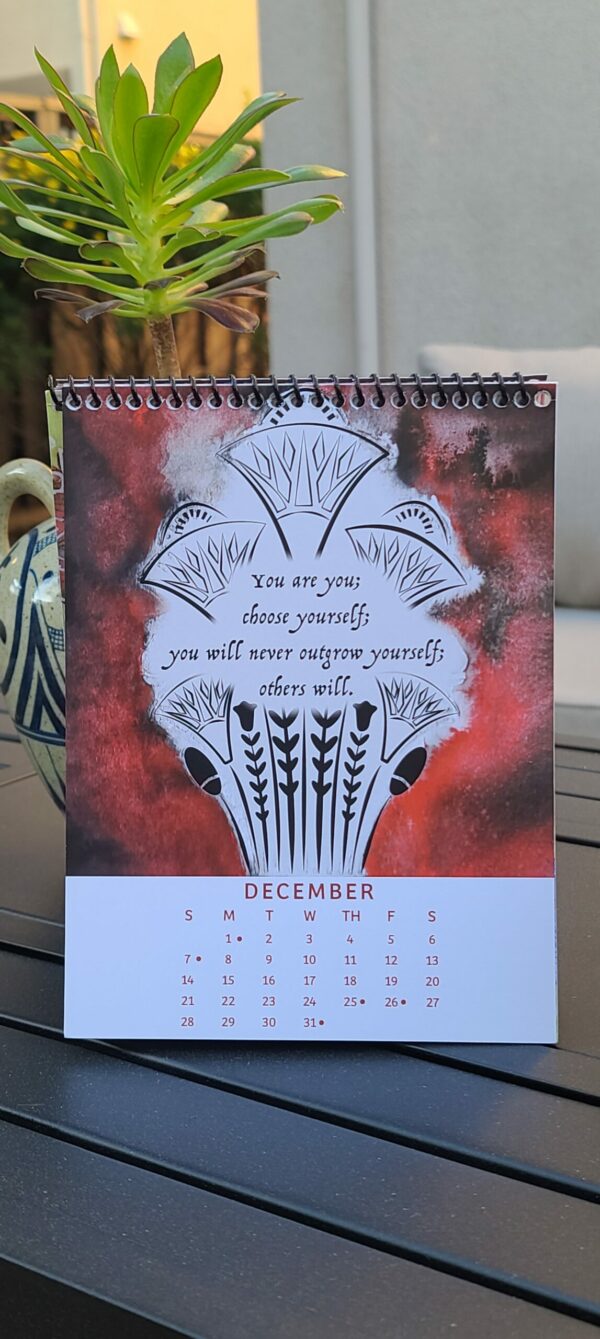 You are you;
choose yourself;
you will never outgrow yourself;
others will.
DECEMBER
S M T W TH F S
1• 2 3 4 5 6
7• 8 9 10 11 12 13
14 15 16 17 18 19 20
21 22 23 24 25• 26• 27
28 29 30 31•